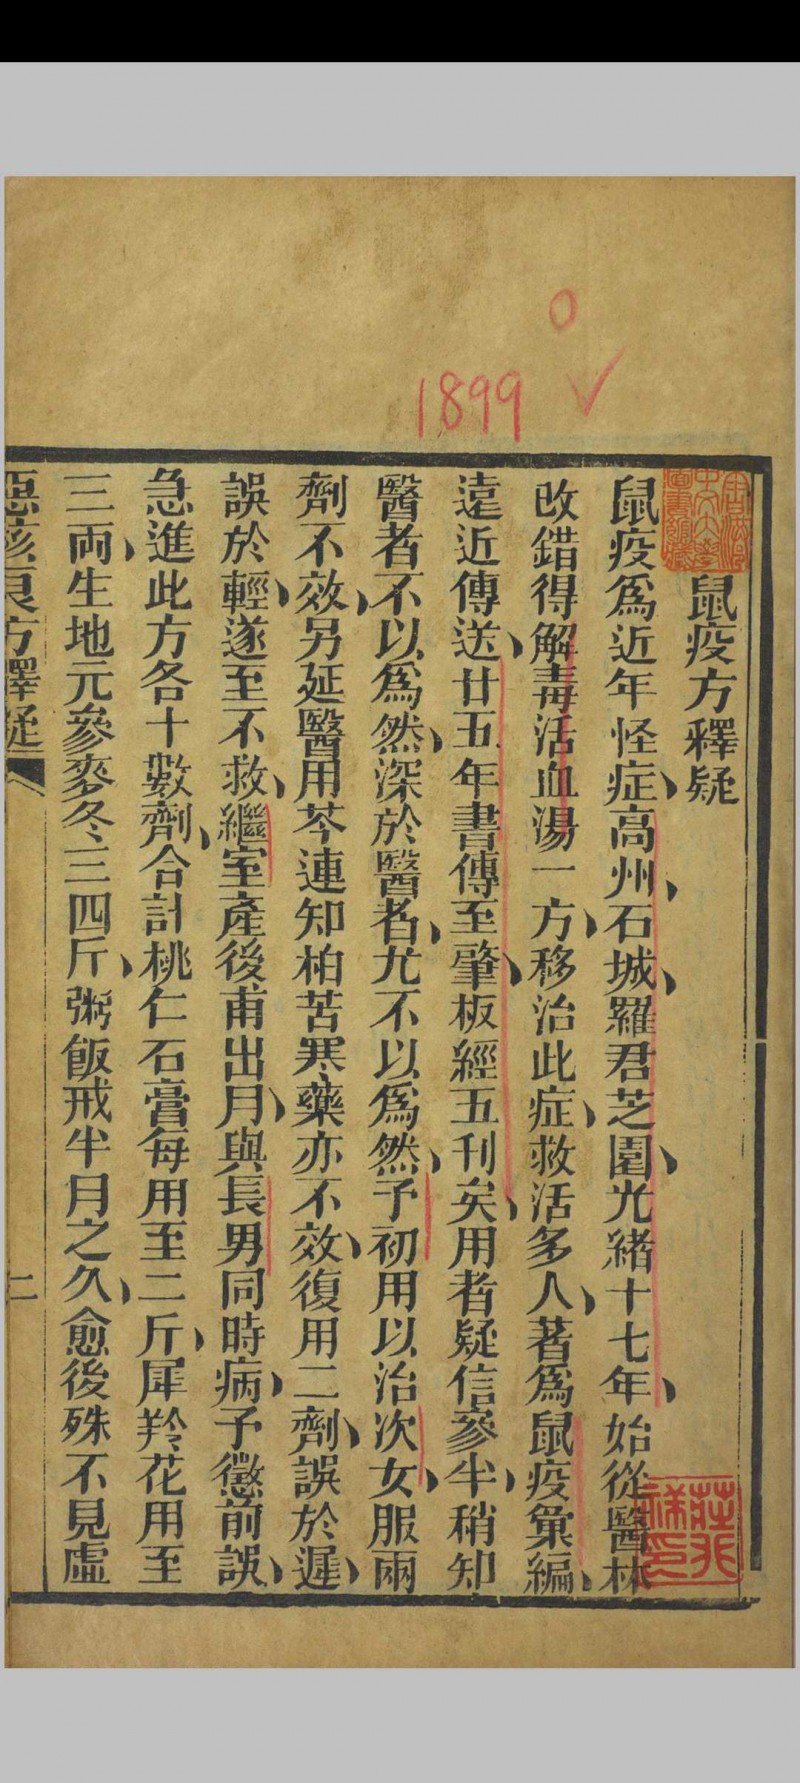 1899
鼠疫方釋疑
鼠疫爲近年怪症高州石城羅君芝園光緒十七年始從醫林
改錯得解毒活血湯一方移治此症救活多人著爲鼠疫彙編
遠近傳送廿五年書傳至肇板經五刊矣用者疑信參半稍知
醫者不以爲然深於醫者尤不以爲然予初用以治次女服兩
劑不效另延醫用芩連知柏苦寒藥亦不效復用二劑誤於遲
誤於輕遂至不救繼室產後甫出月與長男同時病予懲前誤
急進此方各十數劑合計桃仁石膏每用至二斤犀羚花用至
三両生地元參麥冬三四斤粥飯戒半月之久愈後殊不見虛
惡核良方釋疑
二